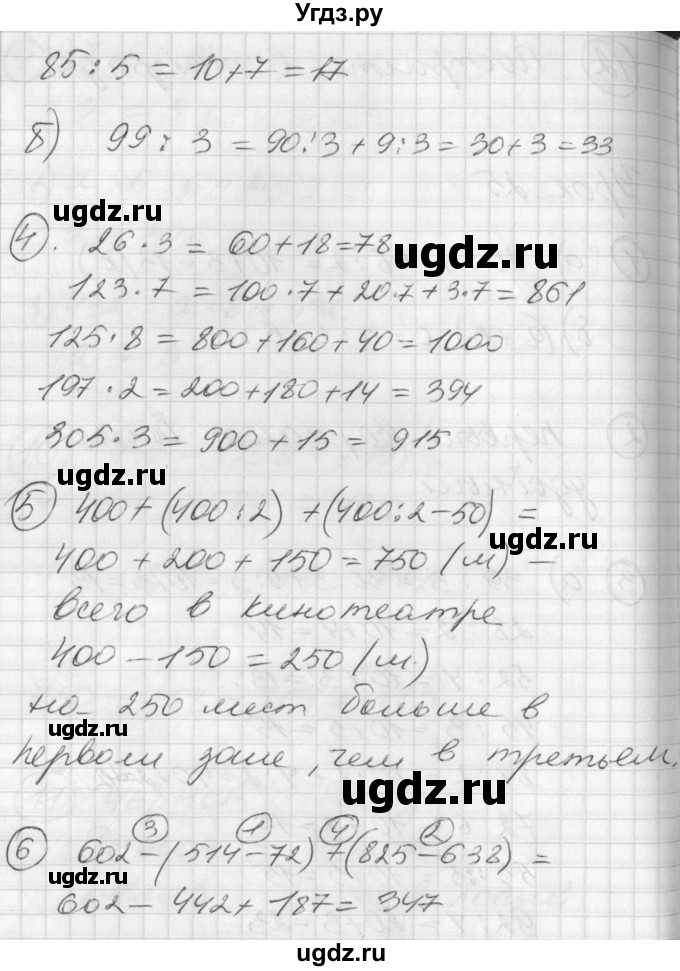 Угдз.ру
85 : 5 = 10 + 7 = 17
б) 99 : 3 = 90 : 3 + 9 : 3 = 30 + 3 = 33
ugdz.ru
4. 26 · 3 = 60 + 18 = 78
ugdz.ru
123 · 7 = 100 · 7 + 20 · 7 + 3 · 7 = 861
125 · 8 = 800 + 160 + 40 = 1000
197 · 2 = 200 + 180 + 14 = 394
305 · 3 = 900 + 15 = 915
ugdz.ru
5 400 + (400 : 2) + (400 : 2 - 50) =
400 + 200 + 150 = 750 (м) -
ugdz.ru
всего в кинотеатре
400 - 150 = 250 (м.)
на 250 мест больше в
ugdz.ru
первом зале, чем в третьем.
ugdz.ru
3 1 4 2
6 602 - (514 - 72) + (825 - 638) =
ugdz.ru
602 - 442 + 187 = 347
ugdz.ru